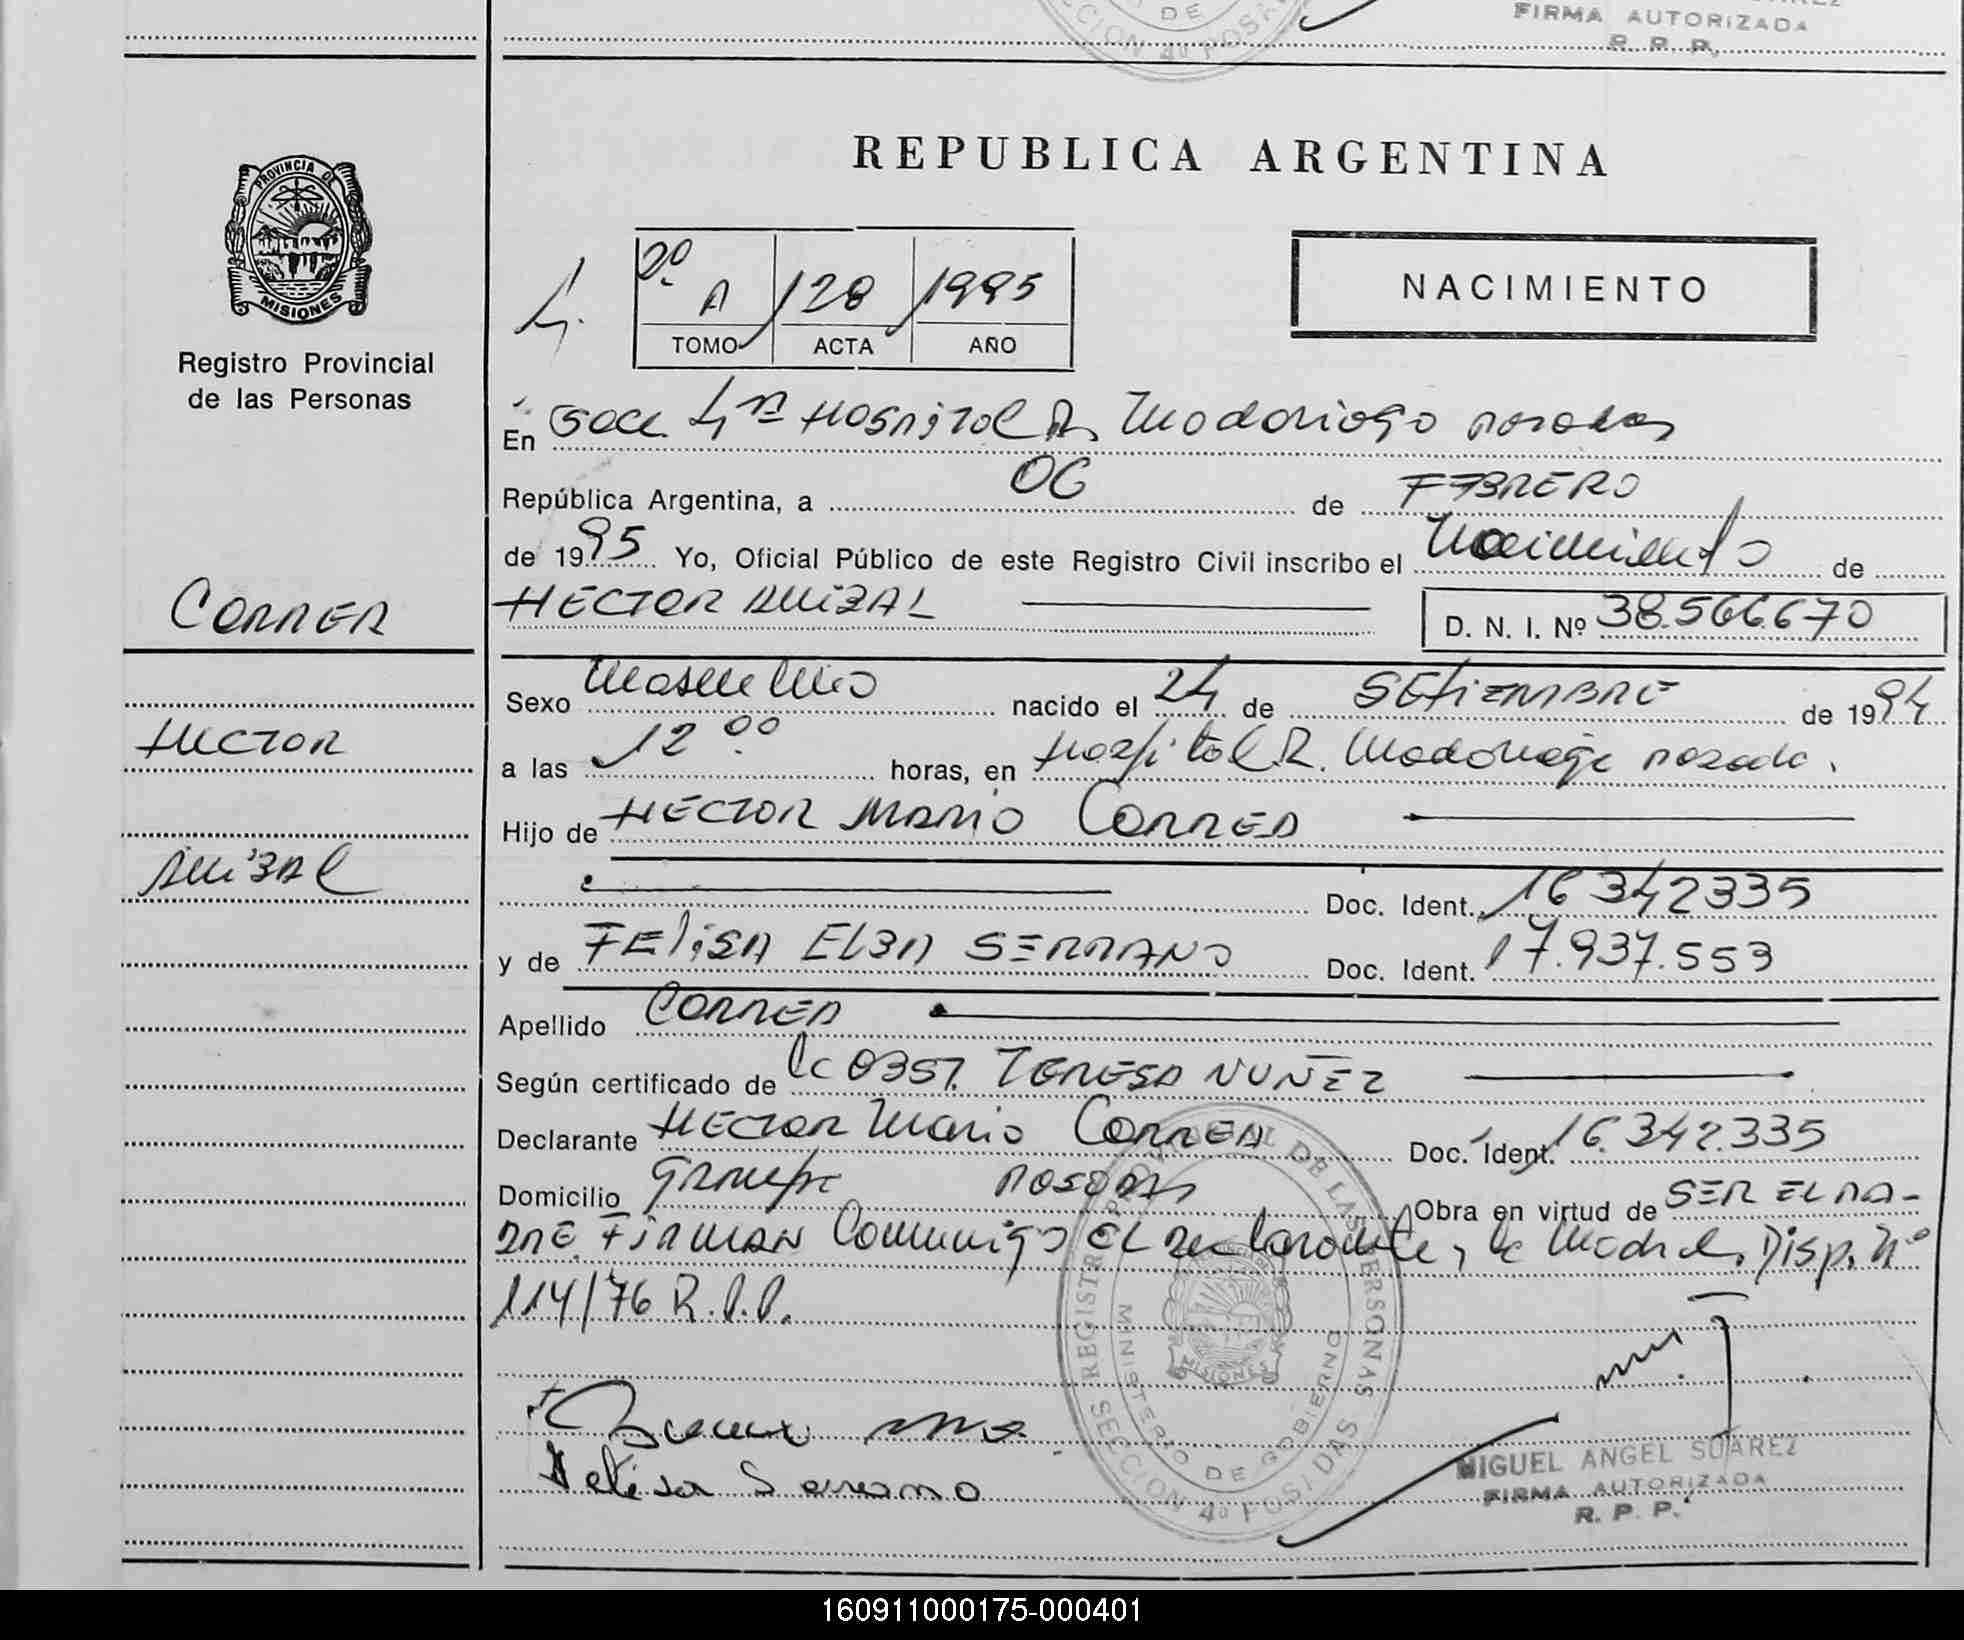 FIRMA AUTORIZADA
R. P. P.
REPUBLICA ARGENTINA
PROVINCIA DE
MISIONES
Registro Provincial
de las Personas
2º A 128 1995
TOMO ACTA AÑO
NACIMIENTO
En Secc. 4ta Hospital R. Madariaga Posadas
República Argentina, a 06 de FEBRERO
de 1995 Yo, Oficial Público de este Registro Civil inscribo el Nacimiento de
HECTOR ANIBAL D. N. I. Nº 38.566.670
CORREA
HECTOR
ANIBAL
Sexo Masculino nacido el 24 de SETIEMBRE de 1994
a las 12 00 horas, en Hospital R. Madariaga Posadas.
Hijo de HECTOR MARIO CORREA
Doc. Ident. 16 342335
y de FELISA ELBA SERRANO Doc. Ident. 17.937.553
Apellido CORREA
Según certificado de la OBST. TERESA NUÑEZ
Declarante HECTOR Mario CORREA Doc. Ident. 16.342.335
Domicilio Posadas Obra en virtud de SER EL PA-
DRE. FIRMAN Conmigo EL declarante y la Madre. Disp. Nº
114/76 R.P.P.
REGISTRO PROVINCIAL DE LAS PERSONAS
MINISTERIO DE GOBIERNO
MISIONES
SECCION 4º POSADAS
Felisa Serrano
MIGUEL ANGEL SUAREZ
FIRMA AUTORIZADA
R. P. P.
160911000175-000401